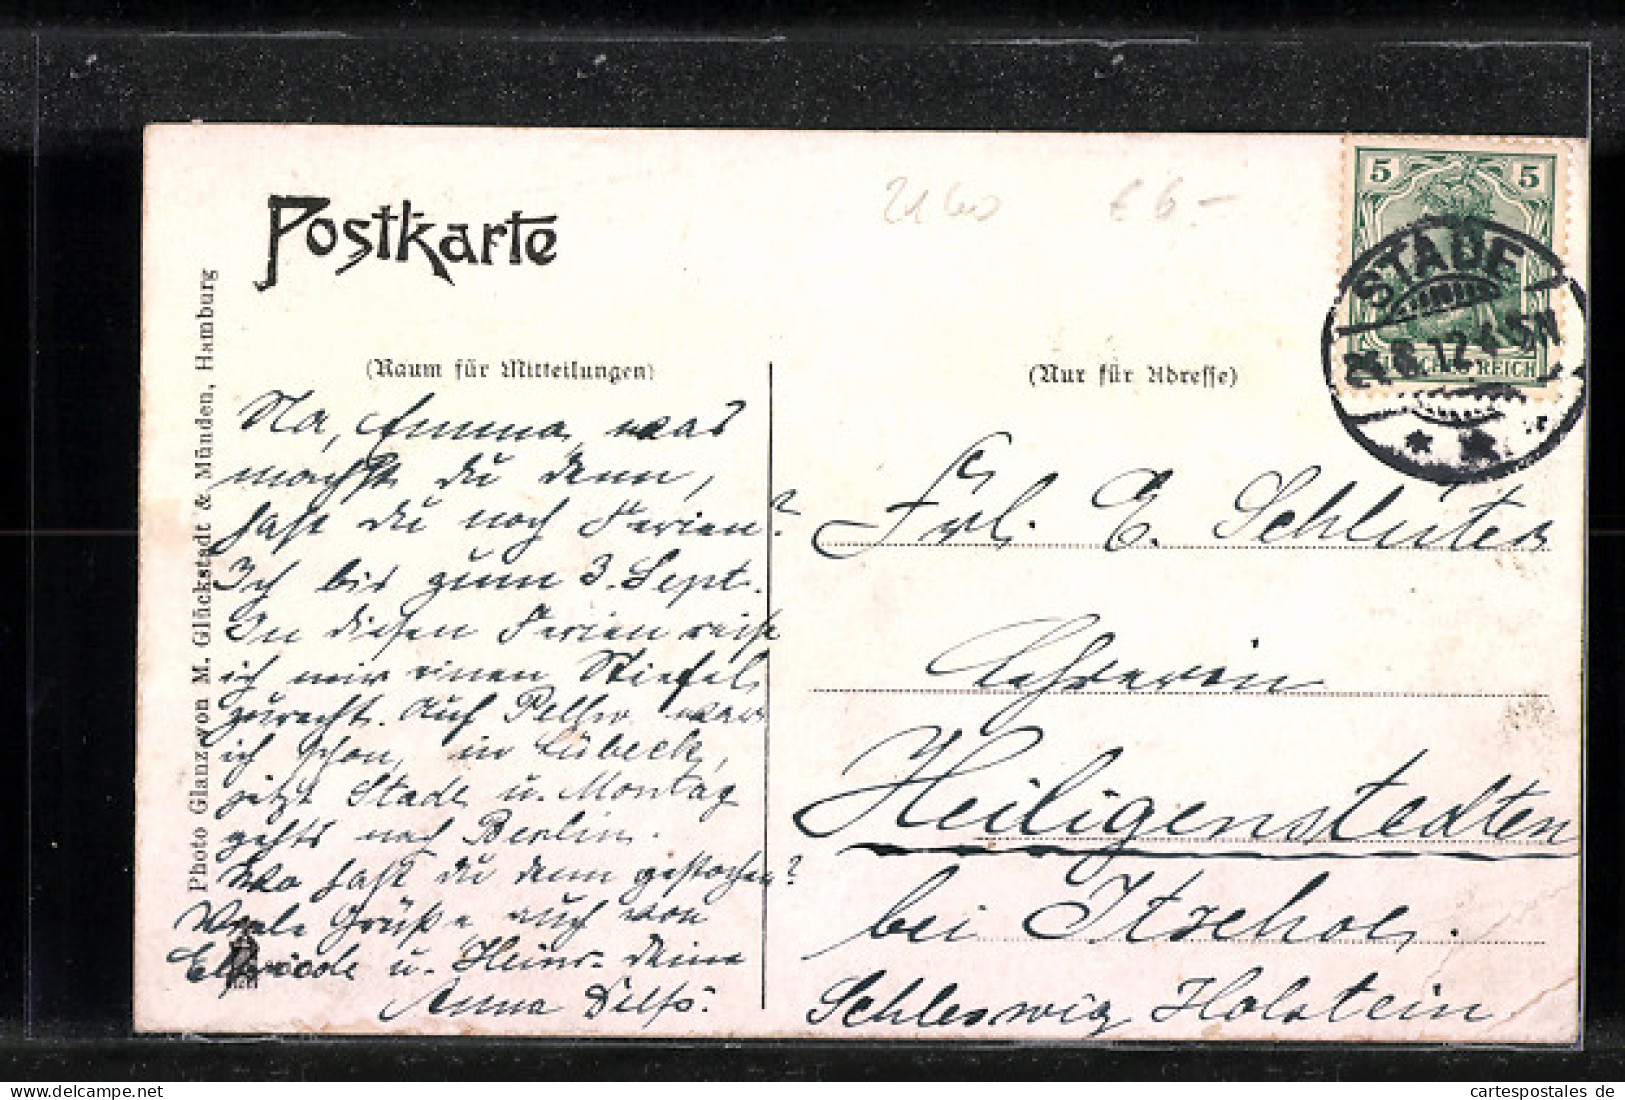 Postkarte
2160 € 6.-
5 5
DEUTSCHES REICH
STADE
8.12
(Raum für Mitteilungen)
(Nur für Adresse)
Photo Glanz von M. Glückstadt & Münden, Hamburg
Na, Emma, was
machst du denn,
hast du noch Ferien?
Ich bis zum 3. Sept.
In diesen Ferien reise
ich mir einen Stiefel
zurecht. Auf war
ich schon, in Lübeck,
jetzt Stade u. Montag
gehts nach Berlin.
Wo hast du denn gestochen?
Viele Grüße auch von
Elfriede u. Heinr. Deine
Anna
Frl. E. Schlüter
Lehrerin
Heiligenstedten
bei Itzehoe.
Schleswig Holstein
cartespostales de